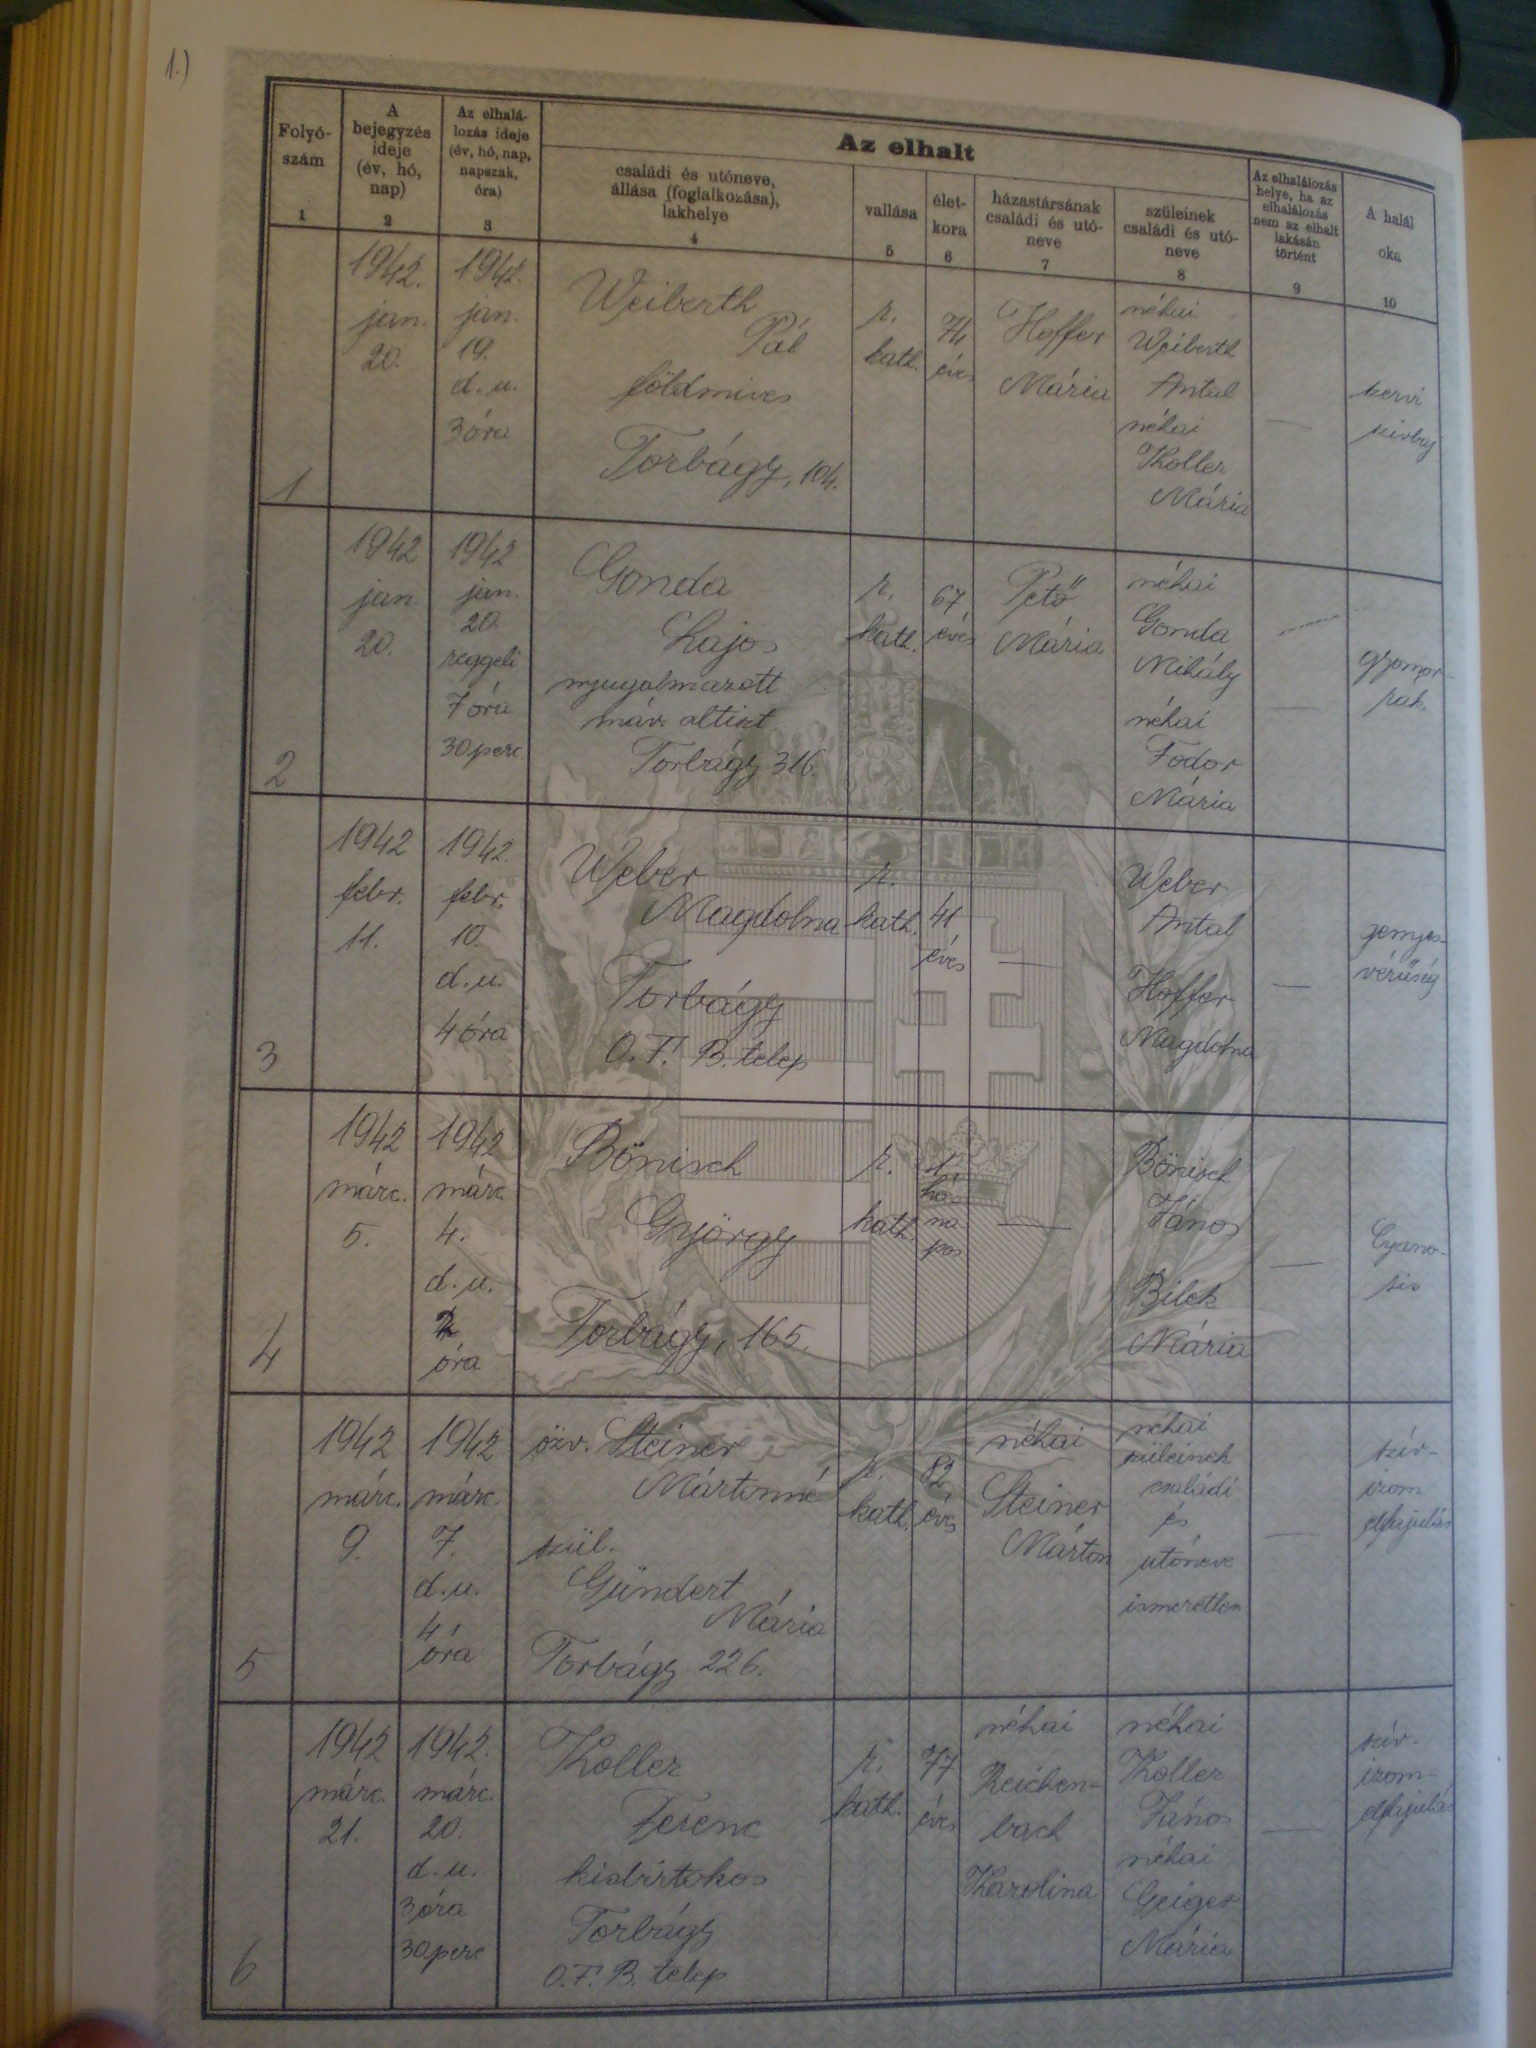 1.)
Az elhalt
Folyó-
szám
1
A
bejegyzés
ideje
(év, hó,
nap)
2
Az elhalá-
lozás ideje
(év, hó, nap,
napszak,
óra)
3
családi és utóneve,
állása (foglalkozása),
lakhelye
4
vallása
5
élet-
kora
6
házastársának
családi és utó-
neve
7
szüleinek
családi és utó-
neve
8
Az elhalálozás
helye, ha az
elhalálozás
nem az elhalt
lakásán
történt
9
A halál
oka
10
1
1942.
jan.
20.
1942.
jan.
19.
d. u.
3 óra
Weiberth
Pál
földmives
Torbágy, 104.
r.
kath.
74
éves
Hoffer
Mária
néhai
Weiberth
Antal
néhai
Koller
Mária
szervi
szivbaj
2
1942
jan.
20.
1942
jan.
20.
reggeli
7 óra
30 perc
Gonda
Lajos
nyugalmazott
máv. altiszt
Torbágy 316.
r.
kath.
67
éves
Pető
Mária
néhai
Gonda
Mihály
néhai
Fodor
Mária
gyomor-
rák.
3
1942
febr.
11.
1942.
febr.
10.
d. u.
4 óra
Weber
Magdolna
Torbágy
O. F. B. telep
r.
kath.
41
éves
Weber
Antal
Hoffer
Magdolna
gennyes-
vérűség
4
1942
márc.
5.
1942
márc.
4.
d. u.
2
óra
Bönisch
György
Torbágy, 165.
r.
kath.
1
hó-
na-
pos
Bönisch
János
Bilek
Mária
Cyano-
sis
5
1942
márc.
9.
1942
márc.
7.
d. u.
4
óra
özv. Steiner
Mártonné
szül.
Gündert
Mária
Torbágy 226.
r.
kath.
82
éves
néhai
Steiner
Márton
néhai
szüleinek
családi
és
utóneve
ismeretlen
szív-
izom
elfajulás
6
1942
márc.
21.
1942.
márc.
20.
d. u.
3 óra
30 perc
Koller
Ferenc
kisbirtokos
Torbágy
O. F. B. telep
r.
kath.
77
éves
néhai
Reichen-
bach
Karolina
néhai
Koller
János
néhai
Geiger
Mária
szív-
izom-
elfajulás